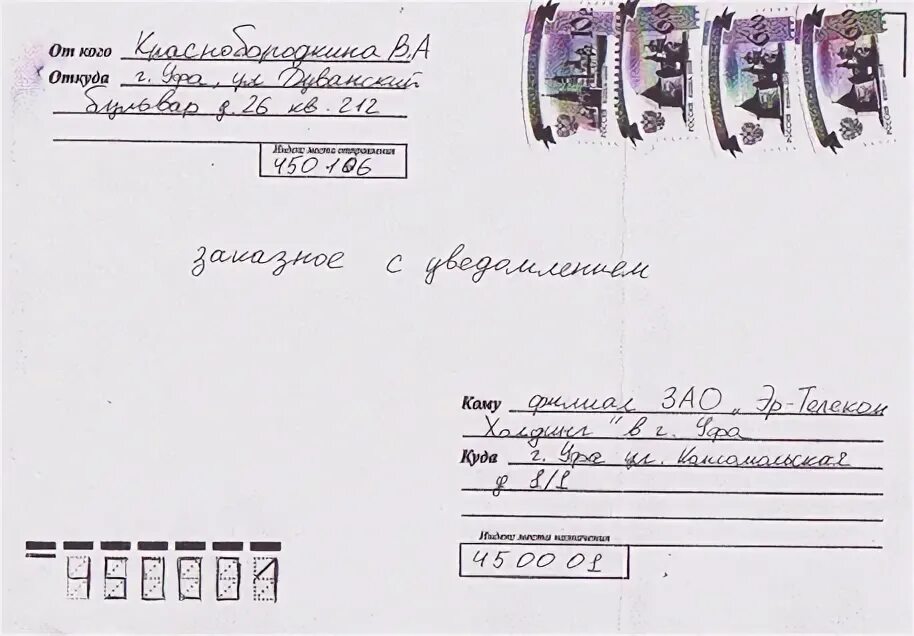 От кого Краснобородкина В.А
Откуда г. Уфа, ул Дуванский
бульвар д. 26 кв. 212
Индекс места отправления
450106
заказное с уведомлением
Кому филиал ЗАО „Эр-Телеком
Холдинг" в г. Уфа
Куда г. Уфа ул. Комсомольская
д 1/1
Индекс места назначения
450001
450001
10
РОССИЯ
РОССИЯ
РОССИЯ
РОССИЯ